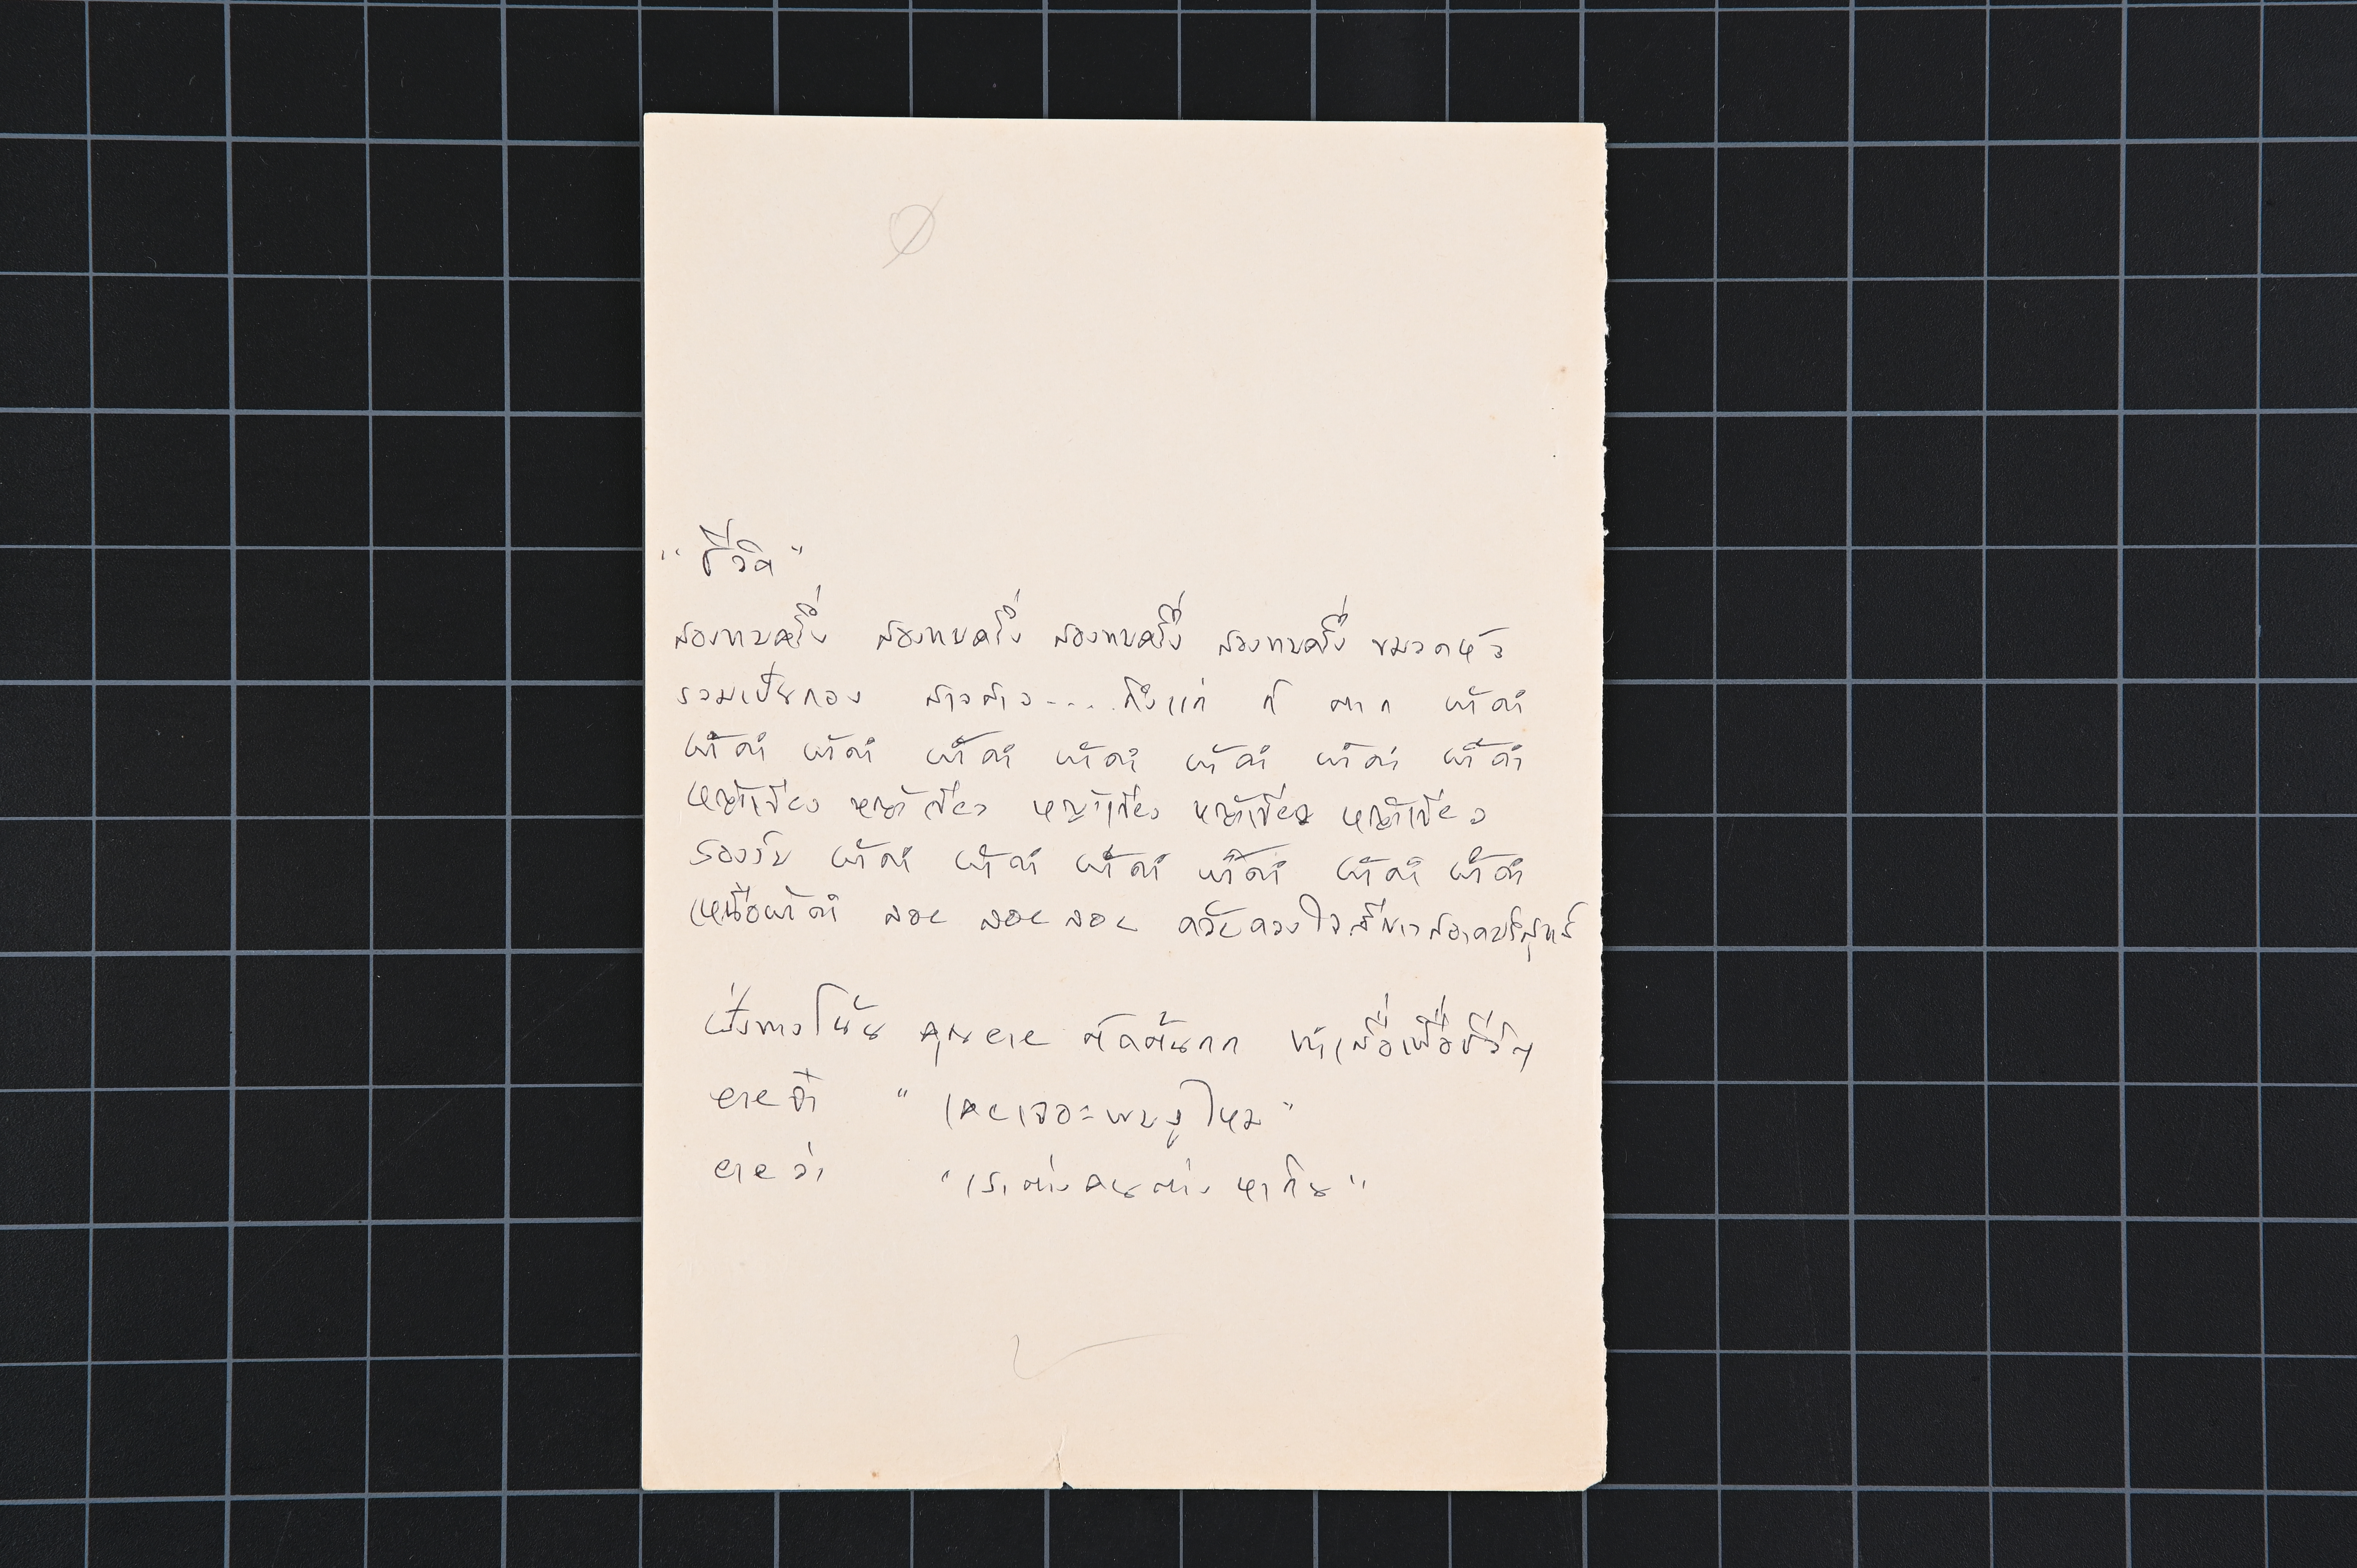 "ชีวิต"
สองทบครึ่ง สองทบครึ่ง สองทบครึ่ง สองทบครึ่ง ขมวดหัว
รวมเป็นกอง สาวสาว.... ถึงแก่ ก็ ตาก ผ้าดำ
ผ้าดำ ผ้าดำ ผ้าดำ ผ้าดำ ผ้าดำ ผ้าดำ ผ้าดำ
หญ้าเขียว หญ้าเขียว หญ้าเขียว หญ้าเขียว หญ้าเขียว
รองรับ ผ้าดำ ผ้าดำ ผ้าดำ ผ้าดำ ผ้าดำ ผ้าดำ
เหนือผ้าดำ ลอย ลอย ลอย ด้วยดวงใจสีขาวสอาดบริสุทธิ์
ฝั่งทางโน้น คุณยาย ตัดต้นกก ทำเสื่อเพื่อชีวิต
ยายจ๋า "เคยเจอะพบงูไหม"
ยายว่า "เราต่างคนต่าง หากิน"